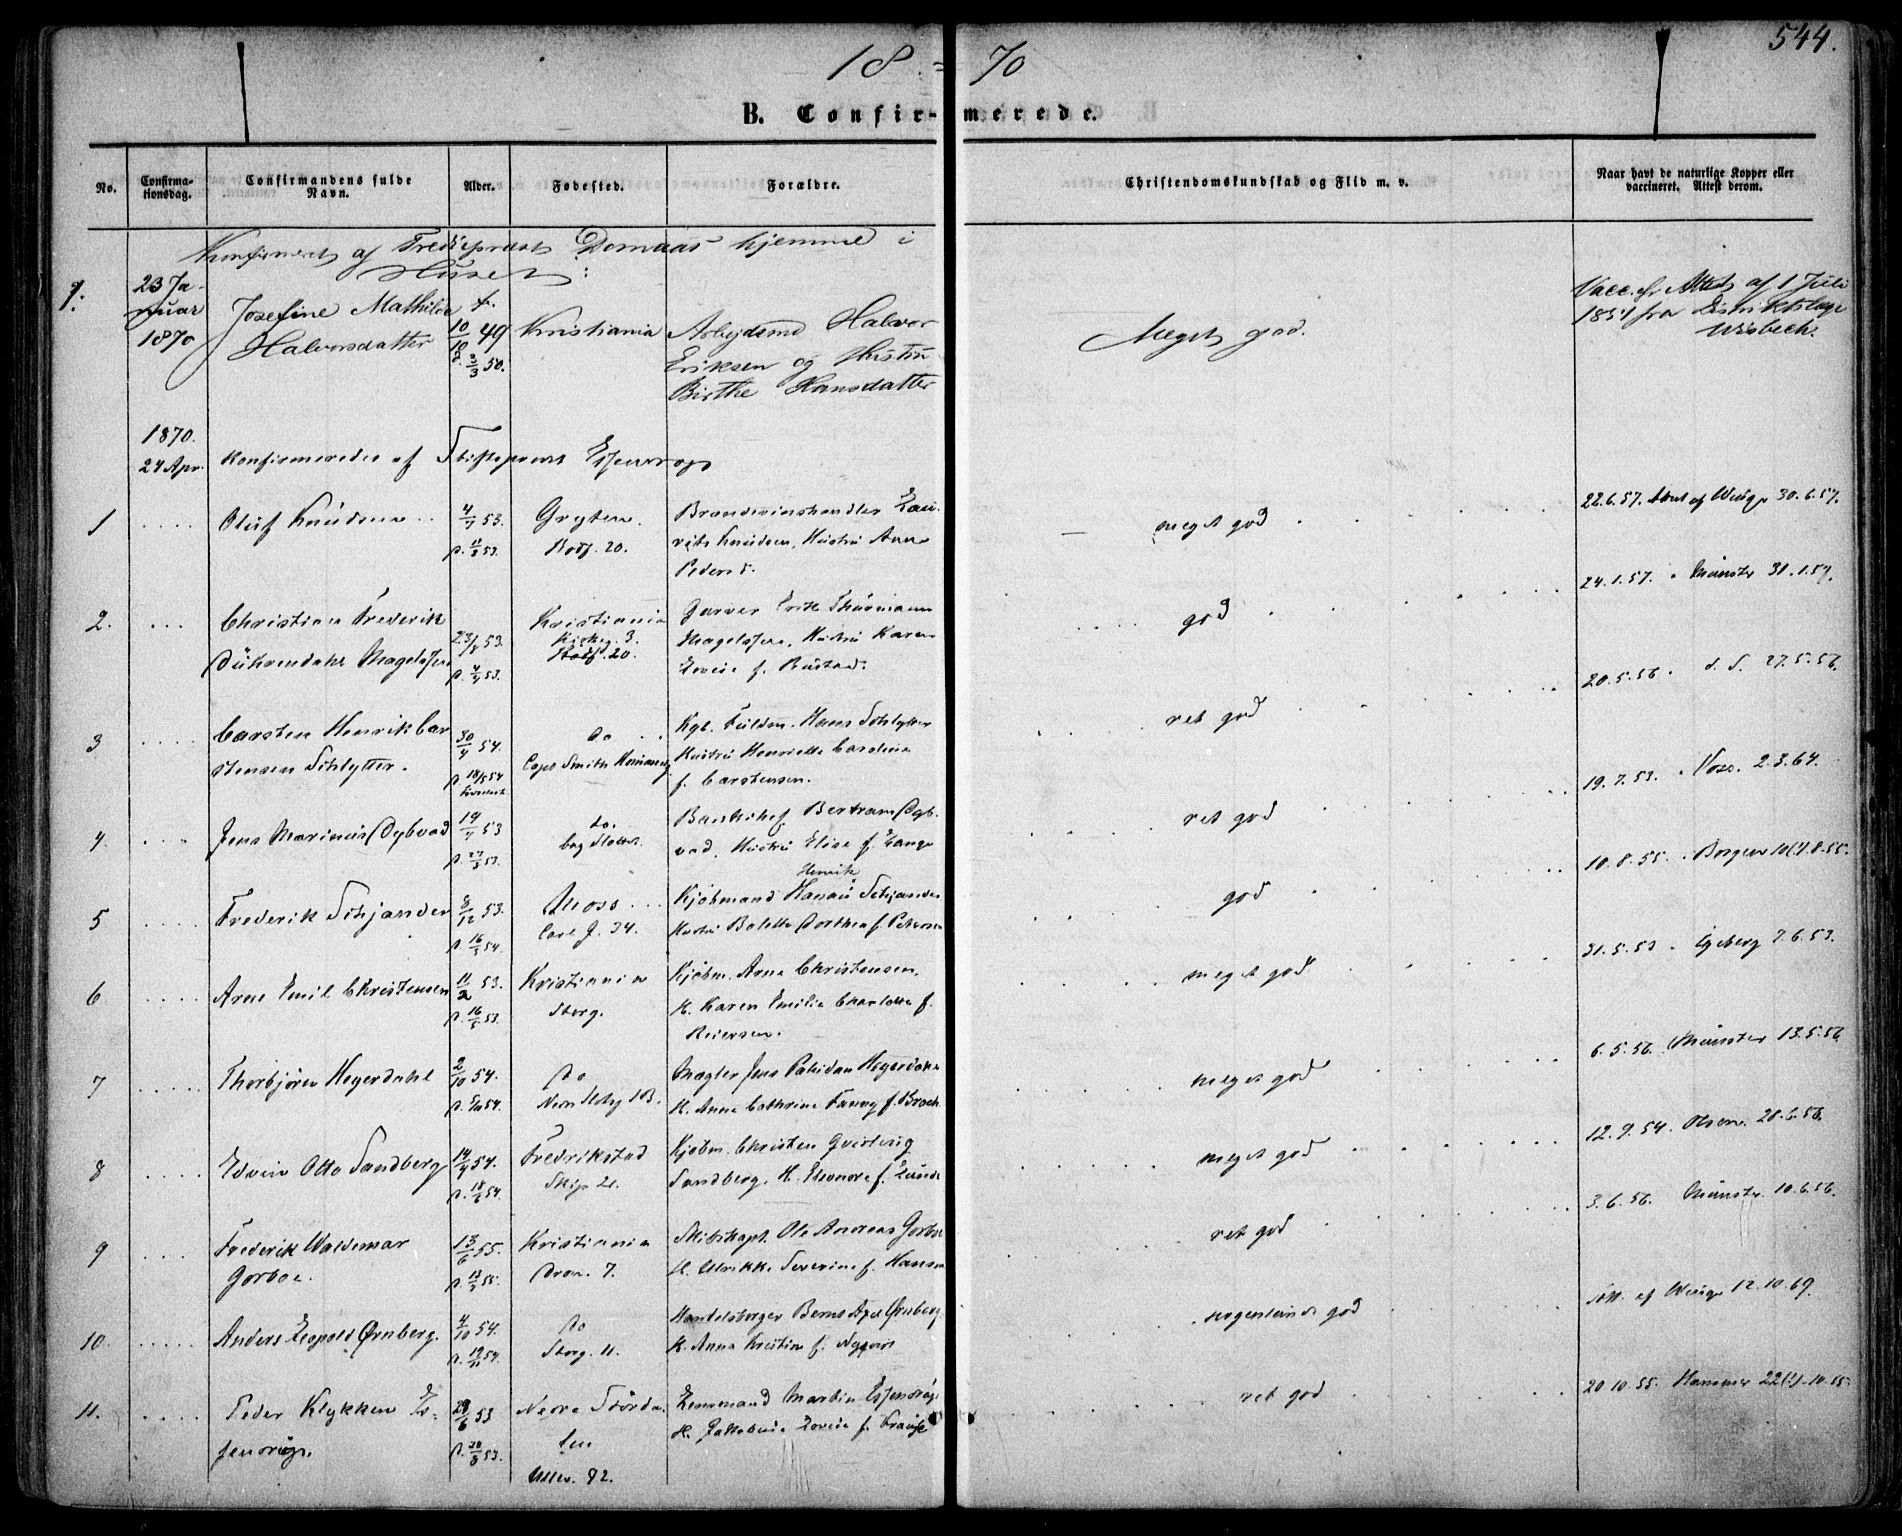 544.
18 70
B. Confir- merede.
No.
Confirma-
tionsdag.
Confirmandens fulde
Navn.
Alder.
Fødested.
Forældre.
Christendomskundskab og Flid m. v.
Naar havt de naturlige Kopper eller
vaccineret. Attest derom.
Konfirmeret af Tredieprest Domaas hjemme i
Huset:
1.
23 Ja-
nuar
1870
Josefine Mathilde
Halvorsdatter
f.
10/10 49
d. 3/3 50.
Kristiania
Arbejdsmd Halvor
Eriksen og Hustru
Birthe Hansdatter
Meget god.
Vacc. efr Attest af 1 Juli
1857 fra Distriktslæge
Wisbech.
1870.
24 Apr.
Konfirmeredes af Stiftsprovst Essendrop
1
Oluf Knudsen
4/7 53.
Gryten.
Brændevinshandler Lau-
rits Knudsen, Hustru Anne
Pedersd.
meget god
22.6.57. Attest af Winge 30.6.57.
2.
Christian Frederik
Dührendahl Magelssen
23/1 53.
Kristiania
Kirkeg. 3.
Garver Erik Thurmann
Magelssen, Hustru Karen
Lovise f. Bustad.
god
24.1.57. Münster 31.1.57.
3
Carsten Henrik Car-
stensen Schlytter.
30/4 54.
do
Capt Smiths
Kgl. Fuldm. Hans Schlytter
Hustru Henriette Cardine
f. Carstensen.
ret god
20.5.56. d. S. 27.5.56.
4.
Jens Marinus Dybvad
19/4 53
do.
bag Slottet.
Bankchef Bertram Dyb-
vad, Hustru Elise f. Lange
ret god
19.7.53. Voss. 2.3.64.
5
Frederik Schjander
8/12 53.
d. 16/3 54.
Moss
Carl J. 34.
Henrik
Kjøbmand Hanau Schjander
Hustru Bolette Dorthea f. Petersen
god
10.8.55. Borgen 10(?).8.55.
6
Arne Emil Christensen
11/2 53.
d. 16/5 53.
Kristiania
Storg.
Kjøbm. Arne Christensen.
H. Karen Emilie Charlotte f.
Reiersen.
meget god
31.5.53. Egeberg 7.6.53.
7
Thorbjørn Heyerdahl
2/10 54.
do
Mægler Jens Paludan Heyerdahl
H. Anne Cathrine Fanny f. Broch
meget god
6.5.56. Münster 13.5.56
8
Edvin Otto Sandberg
14/4 54.
d. 18/6 54.
Fredrikstad
Skip. 21.
Kjøbm. Christen Qvisling
Sandberg. H. Eleonore f. Lund
meget god
12.9.54. Olsen. 20.6.56.
9
Frederik Waldemar
Gorboe.
13/6 55.
Kristiania
Dron. 7.
Skibskapt. Ole Andreas Gorboe
H. Ulrikke Severine f. Hansen
ret god
3.6.56. Münster 10.6.56.
10.
Anders Leopold Ørnberg.
4/10 54.
d. 19/11 54.
do
Storg. 11.
Handelsborger Bernt Axel Ørnberg
H. Anna Kristine f. Nygaard
nogenlunde god
Att. af Winge 12.10.69.
11.
Peder Klykken Es-
sendrop.
29/6 53
Nedre Størda-
len
Ullev. 82.
Lensmand Martin Essendrop
H. Jakobine Lovise f. Krause
ret god
20.10.55. Hammer 22(?).10.55.